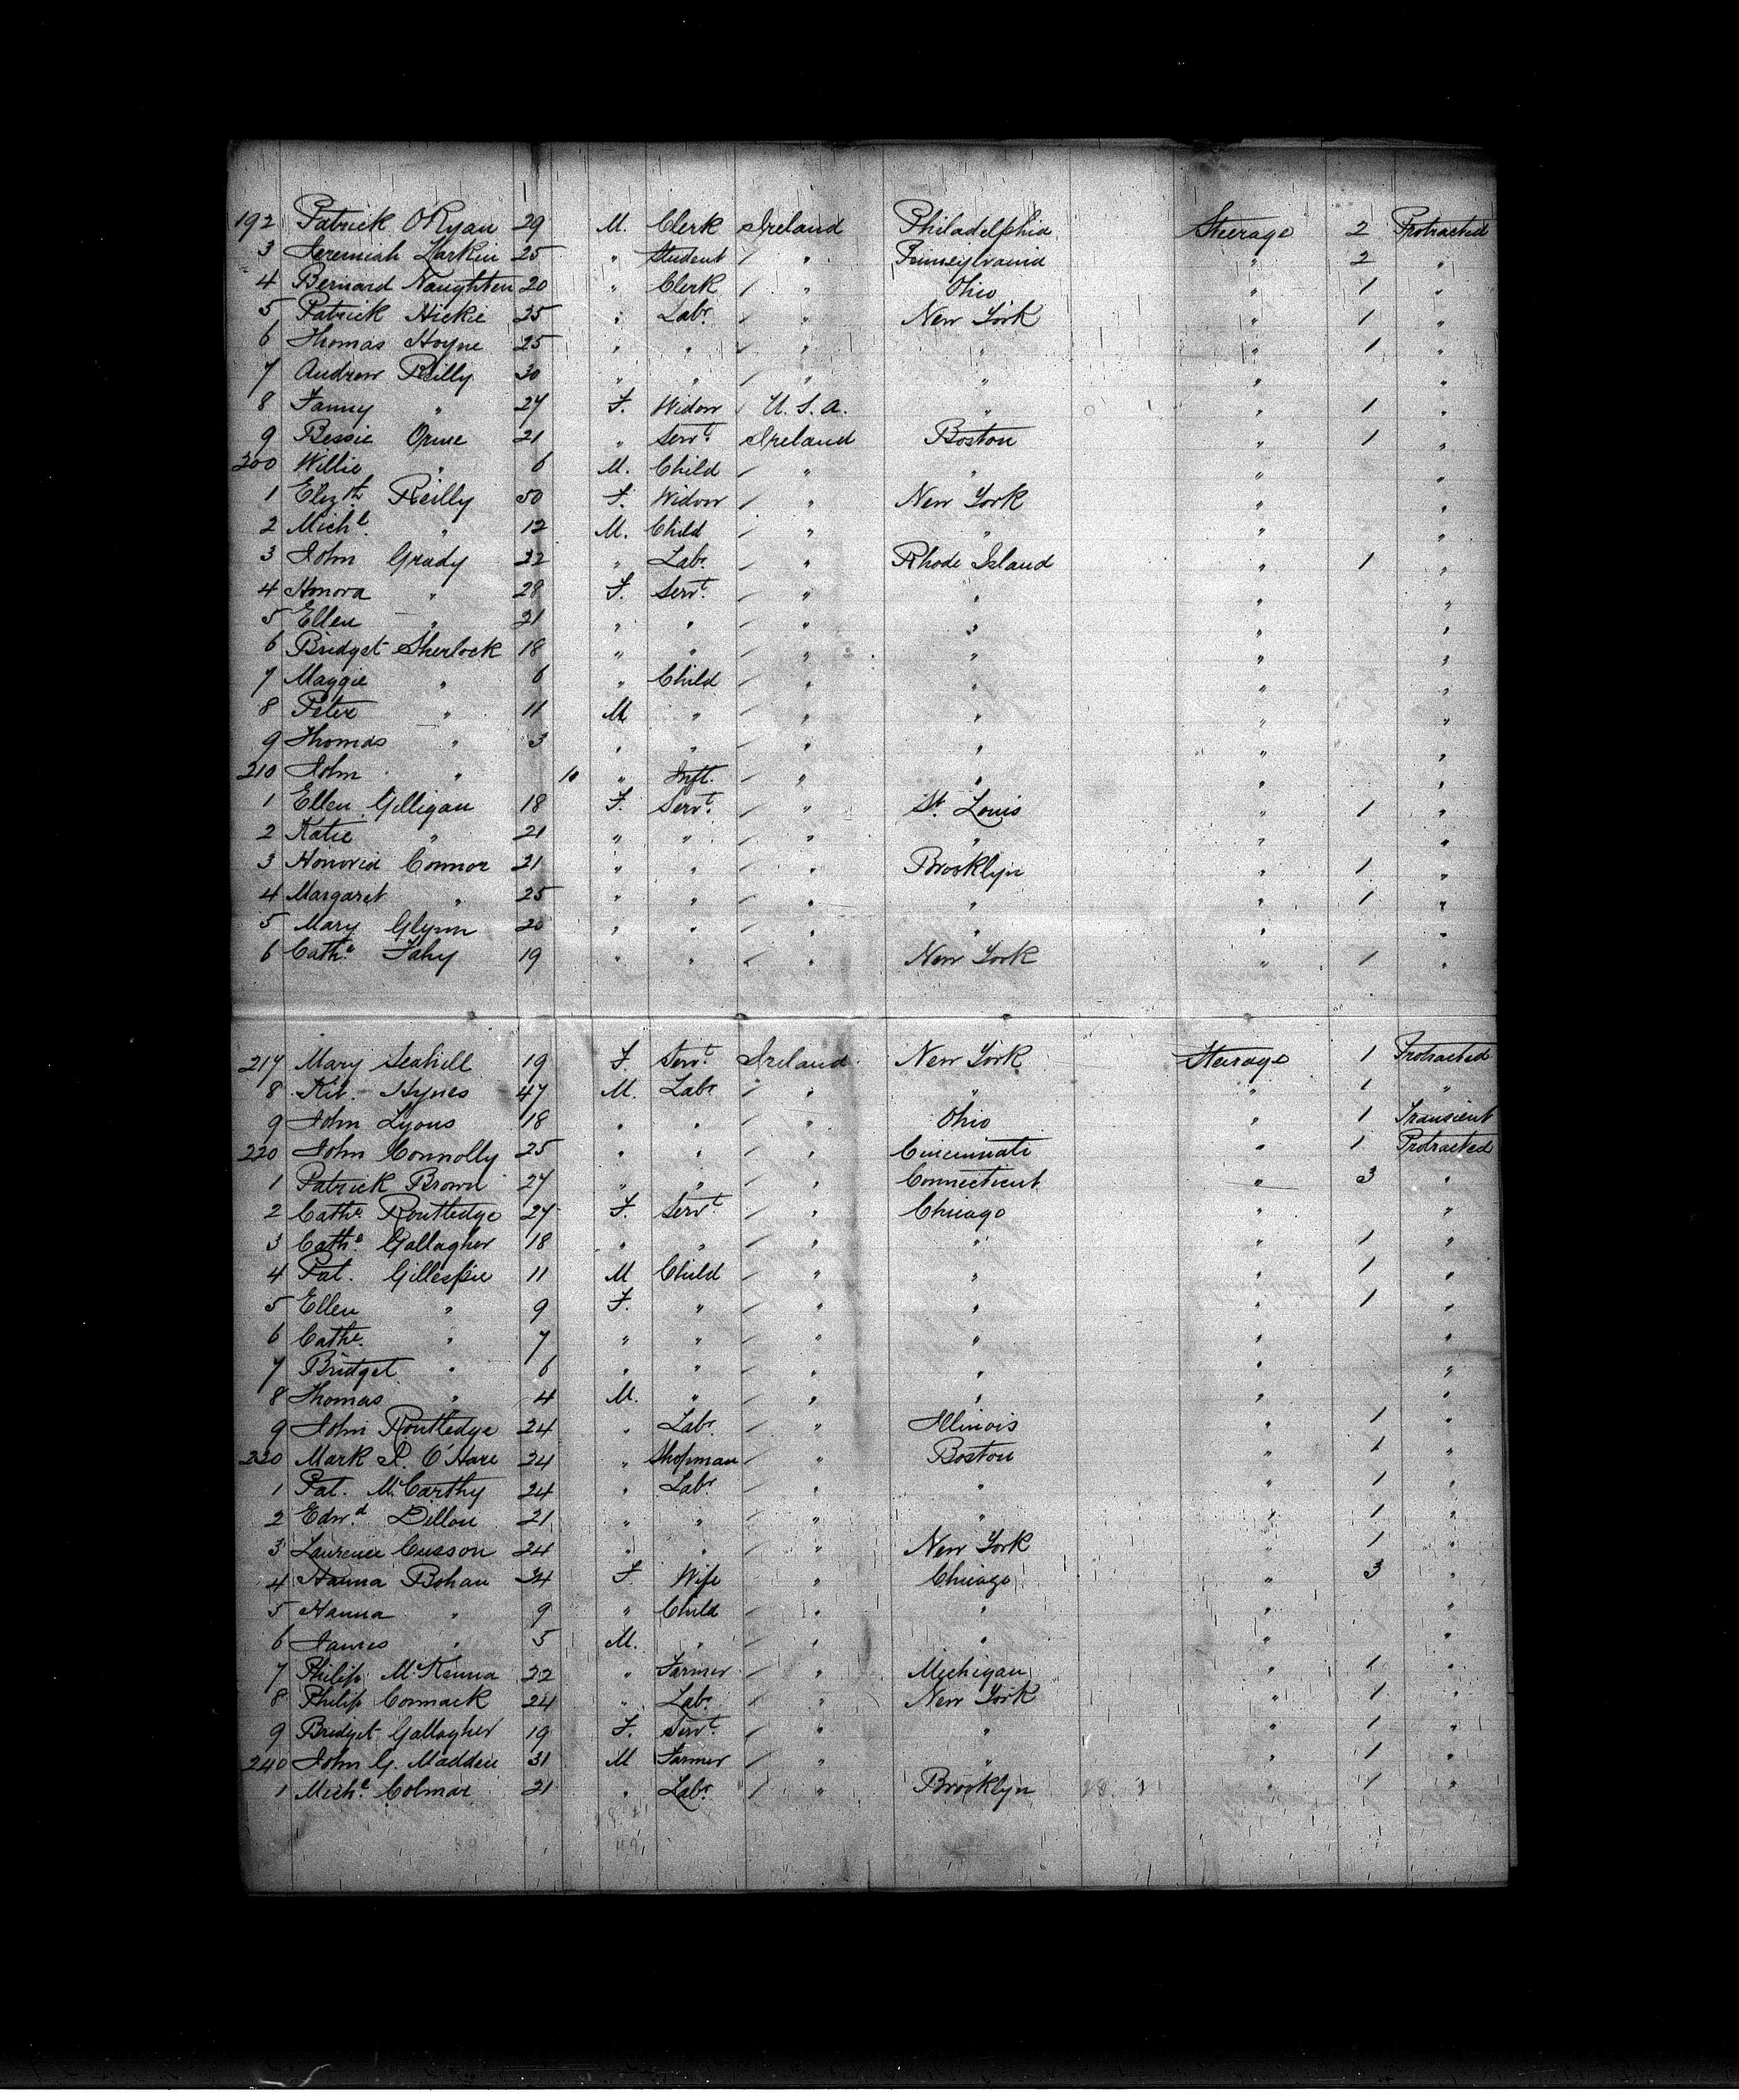 192 Patrick O'Ryan 29 M. Clerk Ireland Philadelphia Steerage 2 Protracted
3 Jeremiah Larkin 25 " Student / " Pennsylvania " 2 "
4 Bernard Naughten 20 " Clerk / " Ohio " 1 "
5 Patrick Hickie 25 " Labr / " New York " 1 "
6 Thomas Hoyne 25 " " / " " " 1 "
7 Andrew Reilly 30 " " / " " " "
8 Fanny " 27 F. Widow / U.S.A. " " 1 "
9 Bessie Orme 21 " Servt. Ireland Boston " 1 "
200 Willie " 6 M. Child / " " " "
1 Elizth Reilly 50 F. Widow / " New York " "
2 Michl. " 12 M. Child / " " " "
3 John Grady 22 " Labr / " Rhode Island " 1 "
4 Honora " 28 F. Servt. / " " " "
5 Ellen " 21 " " / " " " "
6 Bridget Sherlock 18 " " / " " " "
7 Maggie " 6 " Child / " " " "
8 Peter " 11 M " / " " " "
9 Thomas " 3 " " / " " " "
210 John " 10 " Inft. / " " " "
1 Ellen Gilligan 18 F. Servt. / " St. Louis " 1 "
2 Katie " 21 " " / " " " "
3 Honoria Connor 21 " " / " Brooklyn " 1 "
4 Margaret " 25 " " / " " " 1 "
5 Mary Glynn 20 " " / " " " "
6 Cathe. Fahy 19 " " / " New York " 1 "
217 Mary Seahill 19 F. Servt. Ireland New York Steerage 1 Protracted
8 Kit. Hynes 47 M. Labr / " " " 1 "
9 John Lyons 18 " " / " Ohio " 1 Transient
220 John Connolly 25 " " / " Cincinnati " 1 Protracted
1 Patrick Brown 27 " " / " Connecticut " 3 "
2 Cathe. Routledge 27 F. Servt / " Chicago " "
3 Cathe. Gallagher 18 " " / " " " 1 "
4 Pat. Gillespie 11 M Child / " " " 1 "
5 Ellen " 9 F. " / " " " 1 "
6 Cathe. " 7 " " / " " " "
7 Bridget " 6 " " / " " " "
8 Thomas " 4 M. " / " " " "
9 John Routledge 24 " Labr / " Illinois " 1 "
230 Mark P. O'Hare 24 " Shopman / " Boston " 1 "
1 Pat. McCarthy 24 " Labr / " " " 1 "
2 Edwd. Dillon 21 " " / " " " 1 "
3 Laurence Cusson 24 " " / " New York " 1 "
4 Hanna Bohan 34 F. Wife " Chicago " 3 "
5 Hanna " 9 " Child / " " " "
6 James " 5 M. " / " " " "
7 Philip McKenna 22 " Farmer / " Michigan " 1 "
8 Philip Cormack 24 " Labr / " New York " 1 "
9 Bridget Gallagher 19 F. Servt. / " " " 1 "
240 John G. Madden 31 M Farmer / " " " 1 "
1 Michl. Colmar 21 " Labr / " Brooklyn " 1 "